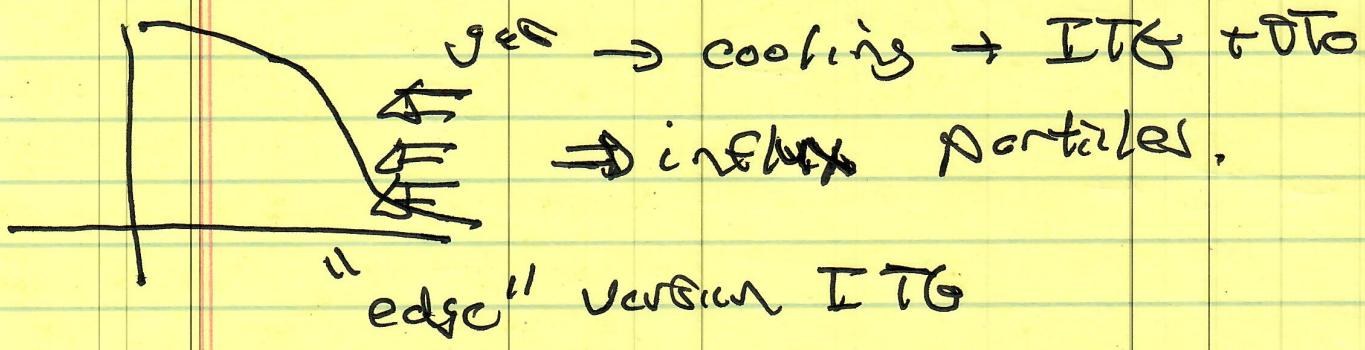 gas → cooling → ITG + ∇T₀
⇒ influx particles.
"edge" version ITG